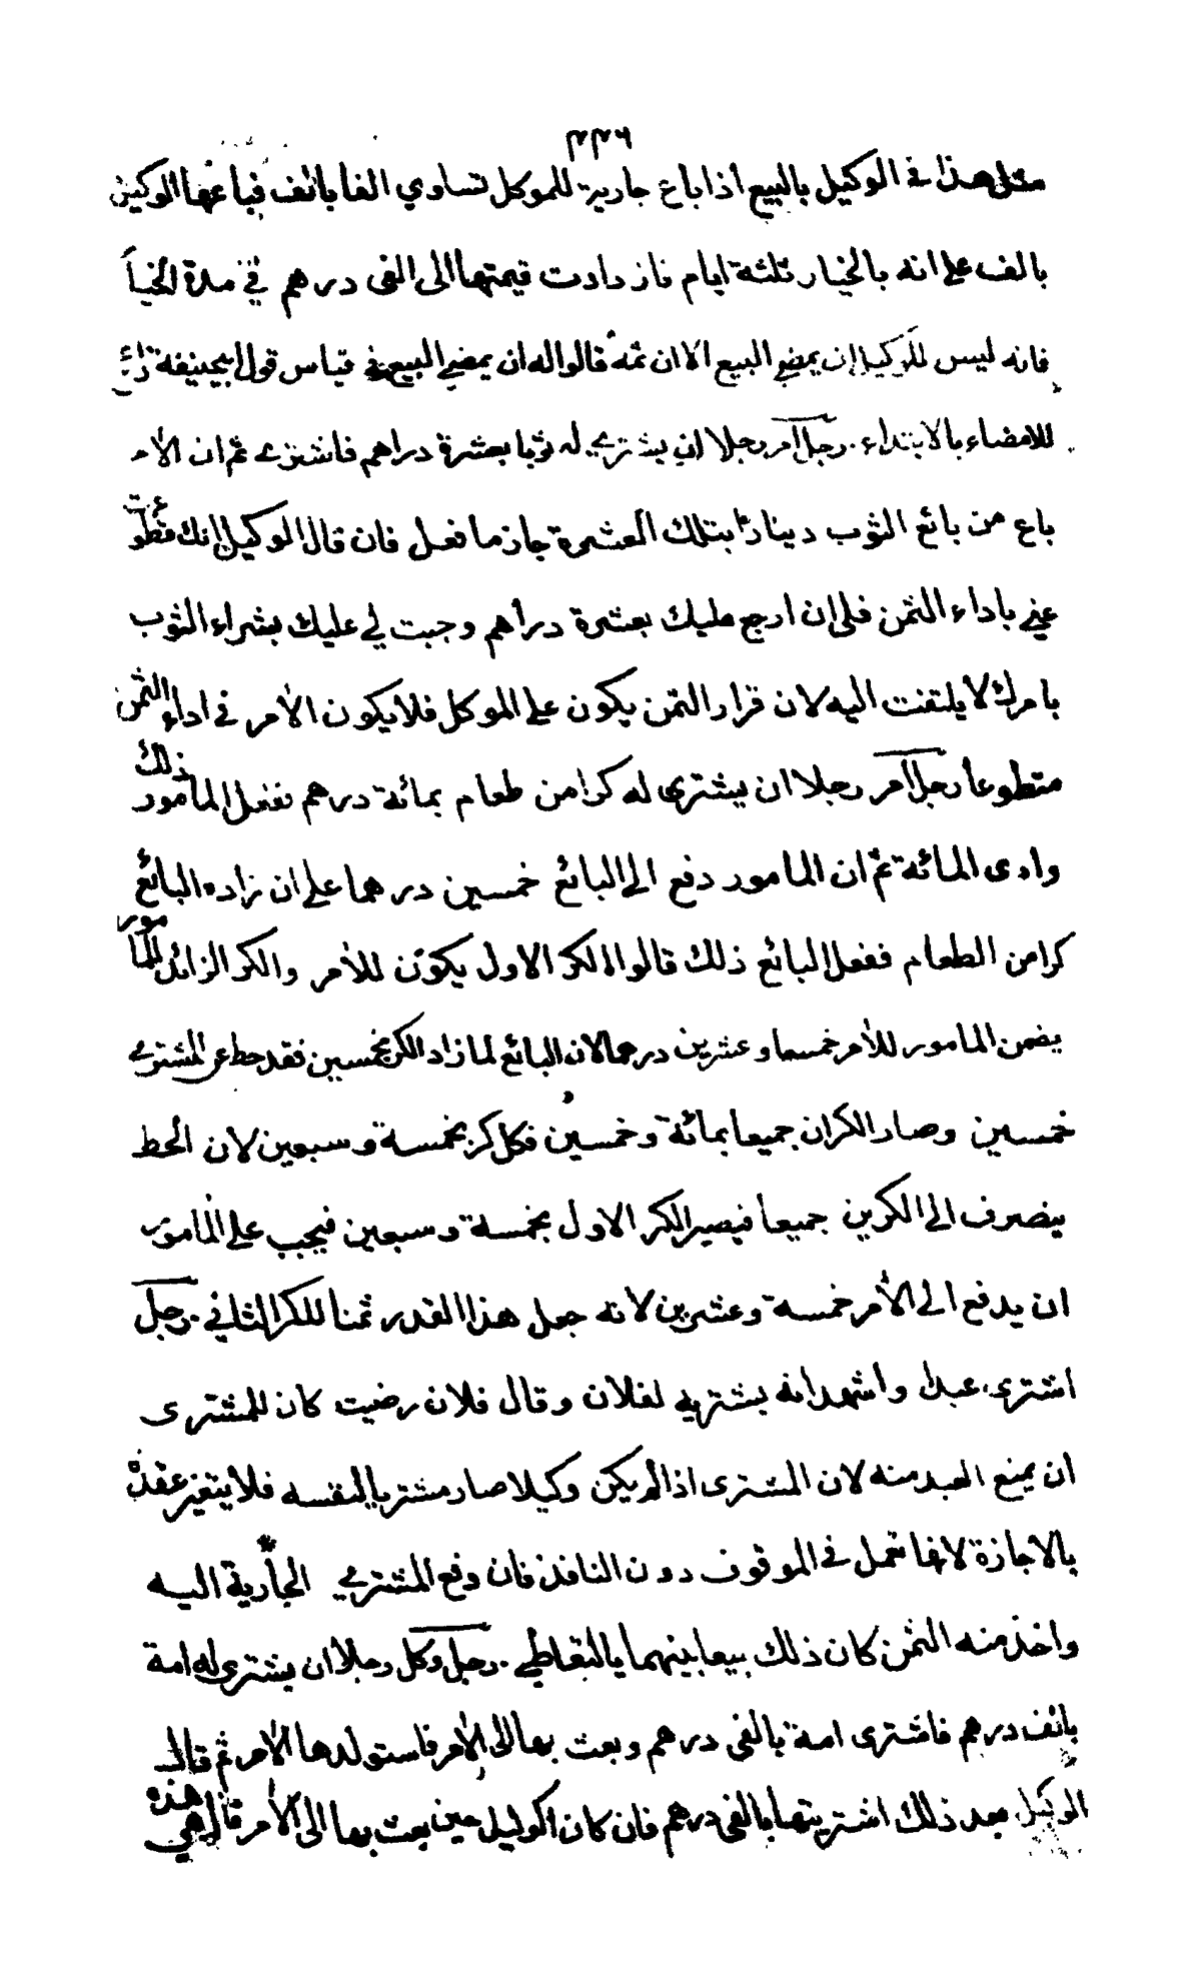 ٣٣٦
مثل هذا في الوكيل بالبيع اذا باع جارية للموكل تساوي الفا بالف فباعها الوكيل
بالف على انه بالخيار ثلثة ايام فازدادت قيمتها الى الفى درهم في مدة الخيا
فانه ليس للوكيل ان يمضي البيع الا ان ثمه قالوا له ان يمضي البيع في قياس قول ابيحنيفة
للامضاء بالابتداء . رجل آمر رجلا ان يشتري له ثوبا بعشرة دراهم فاشترى ثم ان الآمر
باع من بائع الثوب دينارا بتلك العشرة جاز ما فعل فان قال الوكيل انك قد تطوعت
عني باداء الثمن فلي ان ارجع عليك بعشرة دراهم وجبت لي عليك بشراء الثوب
بامرك لا يلتفت اليه لان قرار الثمن يكون على الموكل فلا يكون الآمر في اداء الثمن
متطوعا رجل آمر رجلا ان يشترى له كرا من طعام بمائة درهم ففعل المأمور ذلك
وادى المائة ثم ان المامور دفع الى البائع خمسين درهما على ان زاده البائع
كرا من الطعام ففعل البائع ذلك قالوا الكر الاول يكون للآمر والكر الزائد للمأمور
يضمن المامور للآمر خمسا وعشرين درهما لان البائع لما زاد الكر بخمسين فقد حط عن المشتري
خمسين وصار الكران جميعا بمائة وخمسين فكل كر بخمسة وسبعين لان الحط
ينصرف الى الكرين جميعا فيصير الكر الاول بخمسة وسبعين فيجب على المامور
ان يدفع الى الآمر خمسة وعشرين لانه جعل هذا القدر ثمنا للكر الثاني . رجل
اشترى عبدا واشهد انه يشتريه لفلان وقال فلان رضيت كان للمشترى
ان يمنع العبد منه لان المشترى اذا لم يكن وكيلا صار مشتريا لنفسه فلا يتغير عقده
بالاجازة لانها تعمل في الموقوف دون النافذ فان دفع المشتري الجارية اليه
واخذ منه الثمن كان ذلك بيعا بينهما بالتعاطي . رجل وكل رجلا ان يشترى له امة
بالف درهم فاشترى امة بالفى درهم وبعث بها الى الآمر فاستولدها الآمر ثم قال
الوكيل بعد ذلك اشتريتها بالفى درهم فان كان الوكيل حين بعث بها الى الآمر قال هي هذه